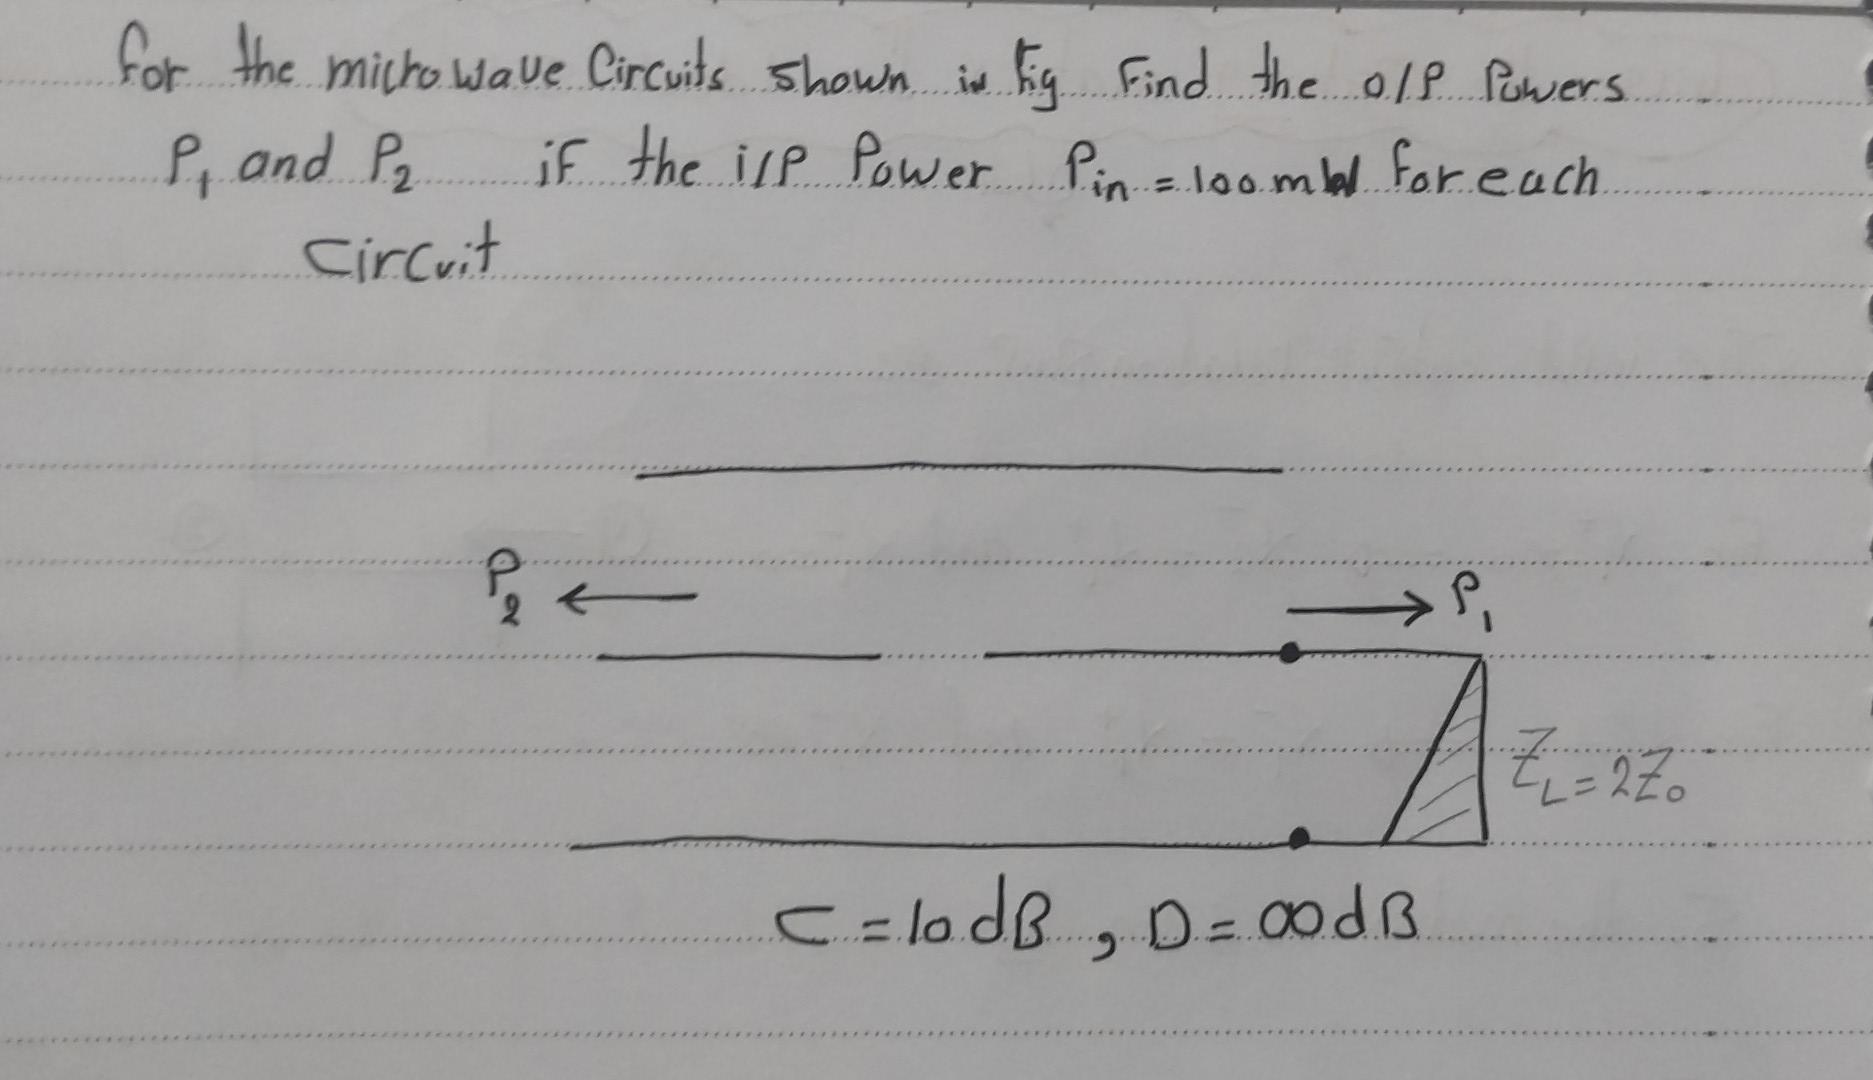 for the microwave Circuits shown in Fig Find the O/P Powers
P1 and P2 if the i/P Power Pin = 100 mW for each
Circuit
P2
P1
ZL = 2Z0
C = 10 dB , D = ∞ dB